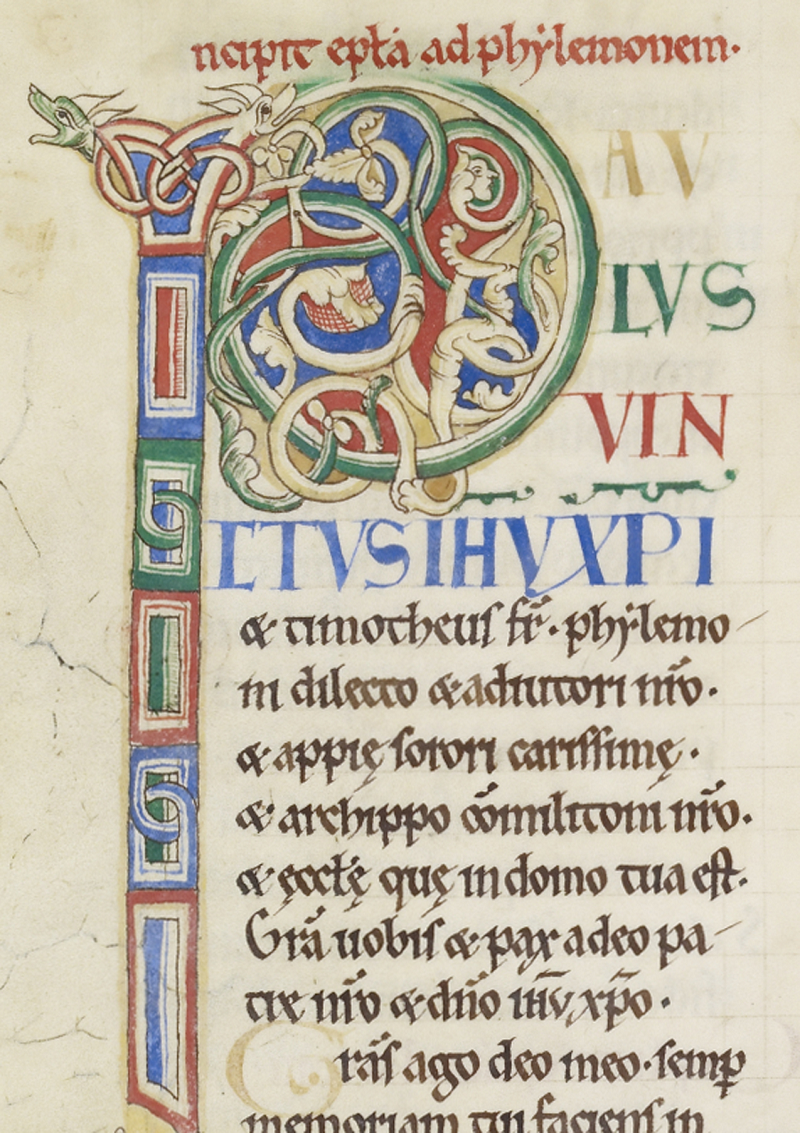 ncipit epła ad phẏlemonem·
PAV
LVS
VIN
CTVS IHV XPI
& timotheus fr̄· phẏlemo
ni dilecto & adiutori nr̄o·
& appię sorori carissimę·
& archippo cōmilitoni nr̄o·
& ęcclę̄ quę in domo tua est·
Grā uobis & pax a deo pa
tre nr̄o & dn̄o ihū xp̄o·
Grās ago deo meo· semꝑ
memoriam tui faciens in